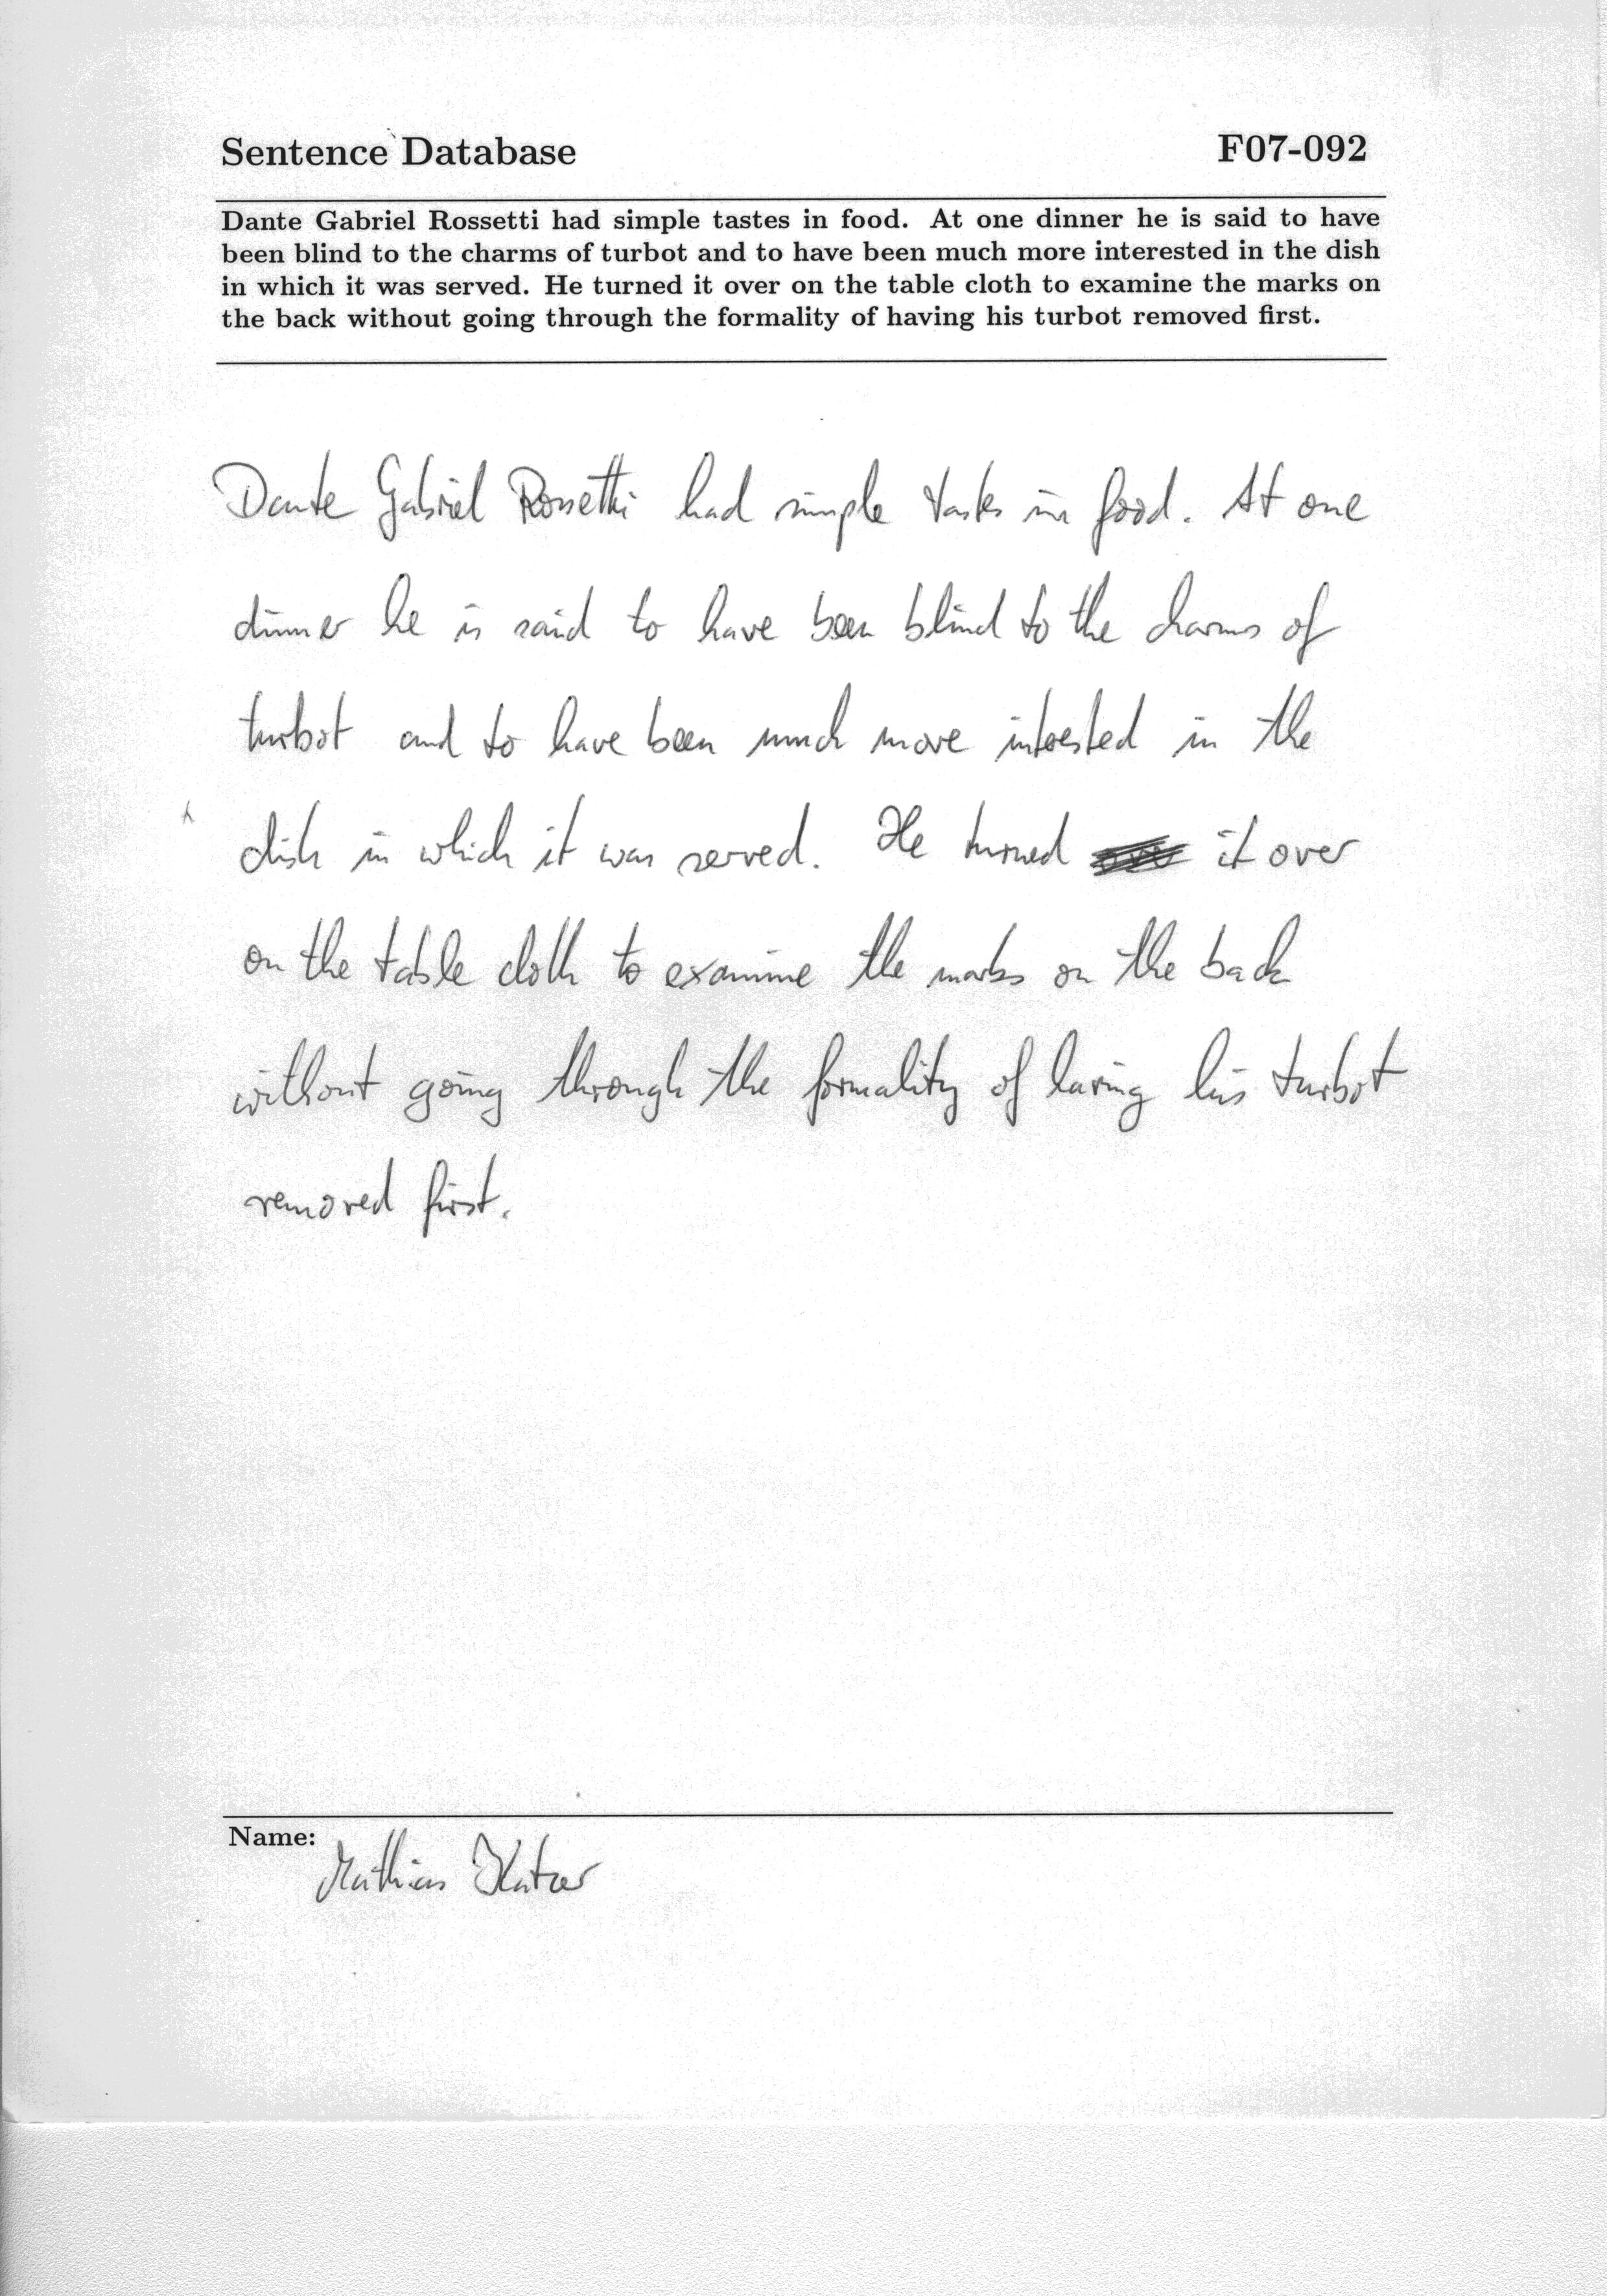 Sentence Database F07-092
Dante Gabriel Rossetti had simple tastes in food. At one dinner he is said to have
been blind to the charms of turbot and to have been much more interested in the dish
in which it was served. He turned it over on the table cloth to examine the marks on
the back without going through the formality of having his turbot removed first.
Dante Gabriel Rossetti had simple tastes in food. At one
dinner he is said to have been blind to the charms of
turbot and to have been much more interested in the
dish in which it was served. He turned it over
on the table cloth to examine the marks on the back
without going through the formality of having his turbot
removed first.
Name:
Mathias Katzer